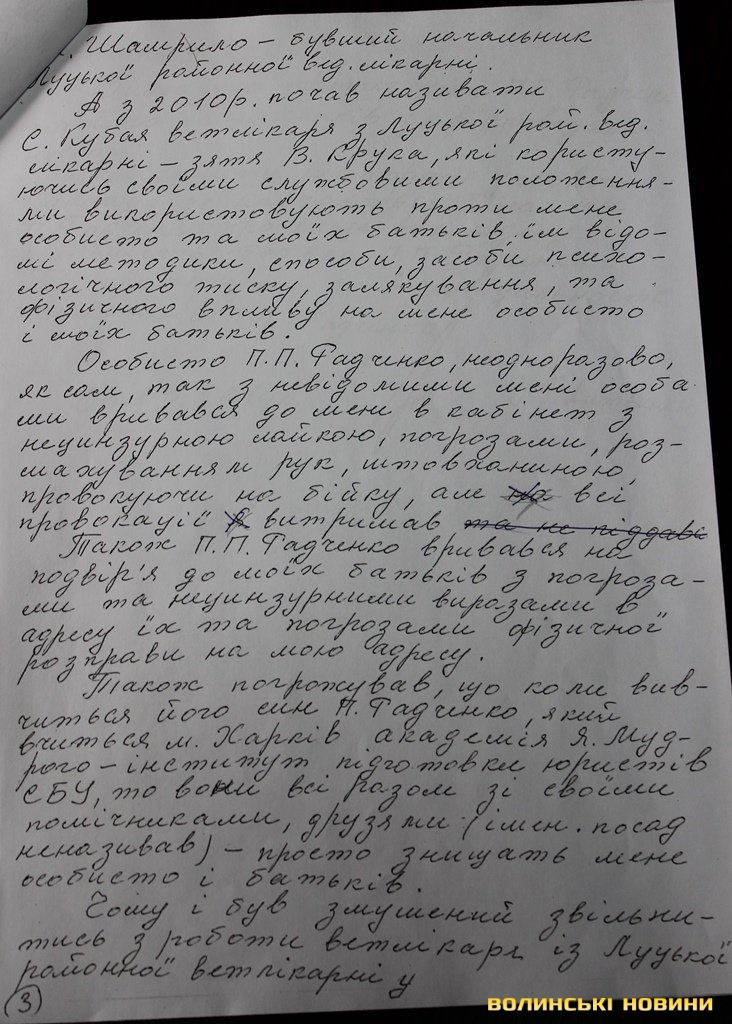 . Шамрило – бувший начальник
Луцької районної вед. лікарні.
А з 2010р. почав називати
Є. Кубая ветлікаря з Луцької рай. вед.
лікарні – зятя В. Крука, які користу-
ючись своїми службовими положення-
ми використовують проти мене
особисто та моїх батьків, їм відо-
мі методики, способи, засоби психо-
логічного тиску, залякування, та
фізичного впливу на мене особисто
і моїх батьків.
Особисто П.П. Гадченко, неодноразово,
як сам, так з невідомими мені особа
ми вривався до мене в кабінет з
нецинзурною лайкою, погрозами, роз-
махуванням рук, штовханиною,
провокуючи на бійку, але на всі
провокації я витримав та не піддавс
Також П.П. Гадченко вривався на
подвір'я до моїх батьків з погроза-
ми та нецинзурними виразами в
адресу їх та погрозами фізичної
розправи на мою адресу.
Також погрожував, що коли вив-
читься його син П. Гадченко, який
вчиться м. Харків академія Я. Муд-
рого – інститут підготовки юристів
СБУ, то вони всі разом зі своїми
помічниками, друзями (імен. посад
неназивав) – просто знищать мене
особисто і батьків.
Чому і був змушений звільни-
тись з роботи ветлікаря із Луцької
районної ветлікарні у
3
ВОЛИНСЬКІ НОВИНИ